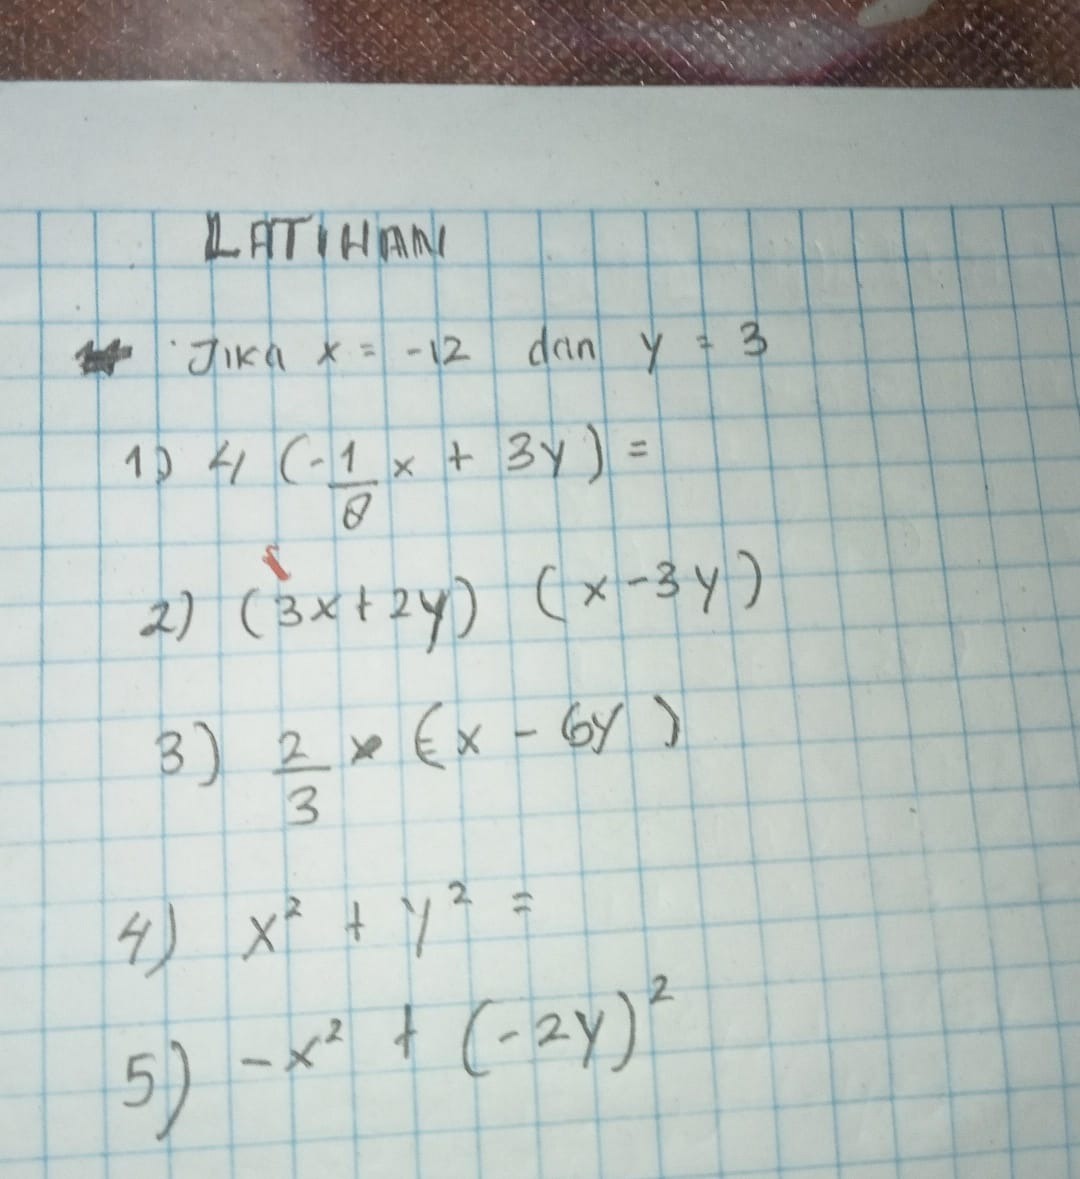 LATIHAN
Jika x = -12 dan y = 3
1) 4 (-1/8 x + 3y) =
2) (3x + 2y) (x - 3y)
3) 2/3 x (x - 6y)
4) x² + y² =
5) -x² + (-2y)²